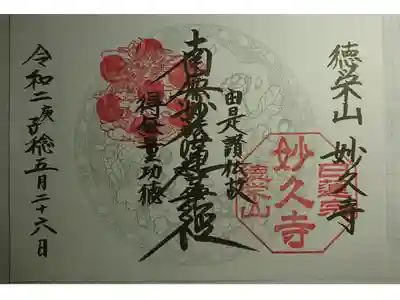 徳栄山 妙久寺
由是讃仏故
南無妙法蓮華経
得無量功徳
令和二庚子稔五月二十六日
日蓮宗
妙久寺
徳栄山